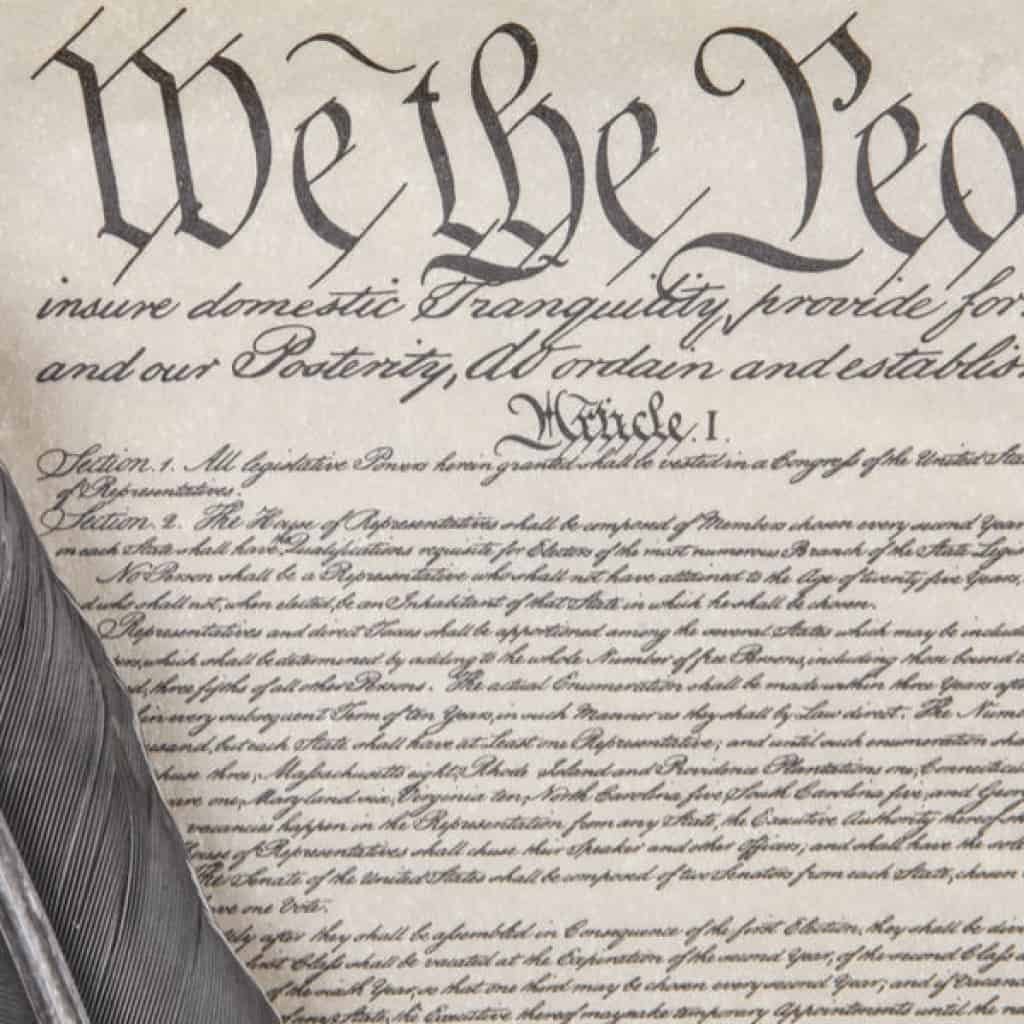 We the Peo
insure domestic Tranquility, provide for
and our Posterity, do ordain and establis
Article. I.
Section. 1. All legislative Powers herein granted shall be vested in a Congress of the United Sta
of Representatives.
Section. 2. The House of Representatives shall be composed of Members chosen every second Year
in each State shall have the Qualifications requisite for Electors of the most numerous Branch of the State Legis
No Person shall be a Representative who shall not have attained to the Age of twenty five Years,
d who shall not, when elected, be an Inhabitant of that State in which he shall be chosen.
Representatives and direct Taxes shall be apportioned among the several States which may be includ
ons, which shall be determined by adding to the whole Number of free Persons, including those bound t
d, three fifths of all other Persons. The actual Enumeration shall be made within three Years afte
in every subsequent Term of ten Years, in such Manner as they shall by Law direct. The Numb
usand, but each State shall have at Least one Representative; and until such enumeration sha
huse three, Massachusetts eight, Rhode Island and Providence Plantations one, Connecticu
are one, Maryland six, Virginia ten, North Carolina five, South Carolina five, and Georg
vacancies happen in the Representation from any State, the Executive Authority thereof sh
House of Representatives shall chuse their Speaker and other Officers; and shall have the sole
The Senate of the United States shall be composed of two Senators from each State, chosen
ave one Vote.
ely after they shall be assembled in Consequence of the first Election, they shall be divi
first Class shall be vacated at the Expiration of the second Year, of the second Class a
of the sixth Year, so that one third may be chosen every second Year; and if Vacanc
of any State, the Executive thereof may make temporary Appointments until the n